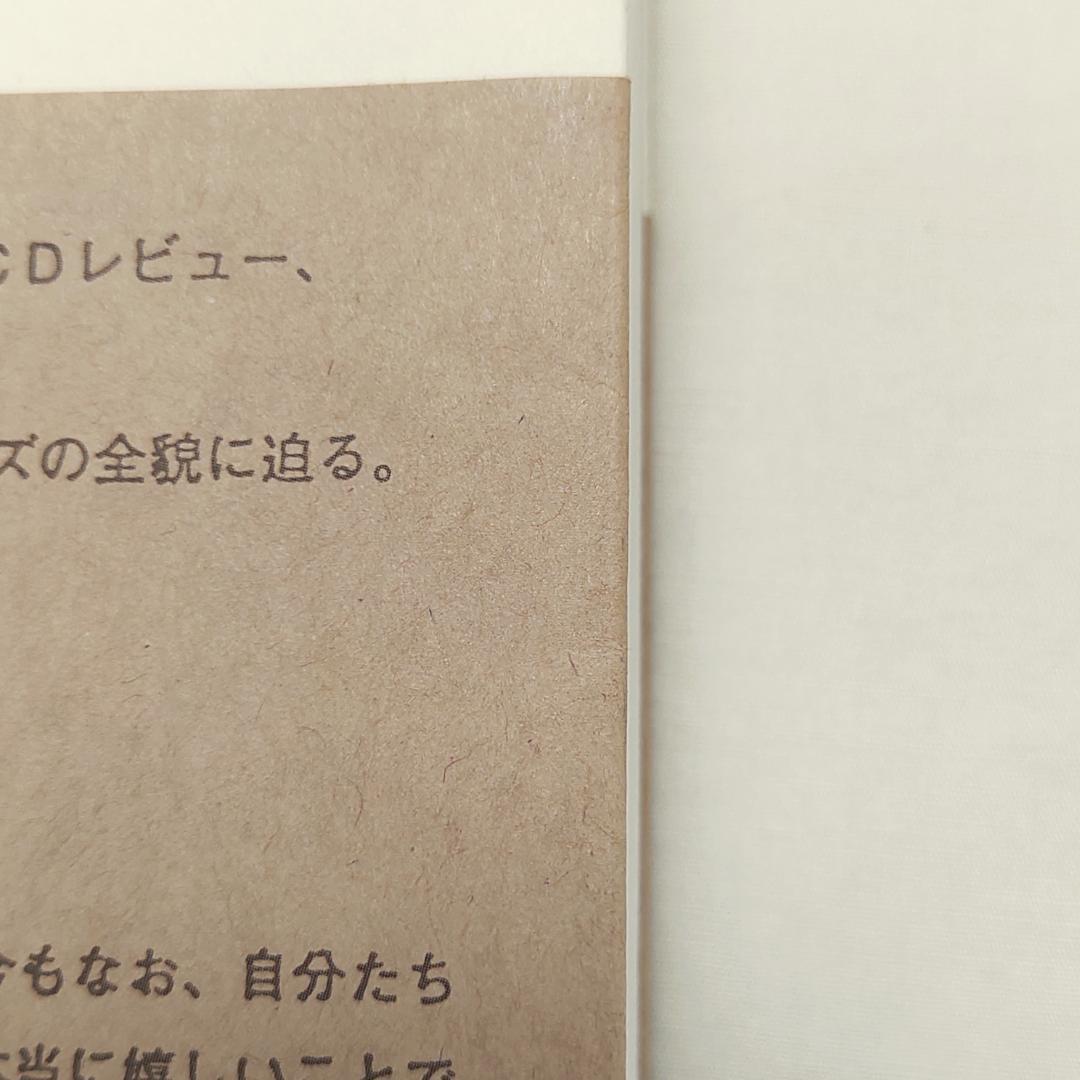 CDレビュー、
ズの全貌に迫る。
今もなお、自分たち
本当に嬉しいことで